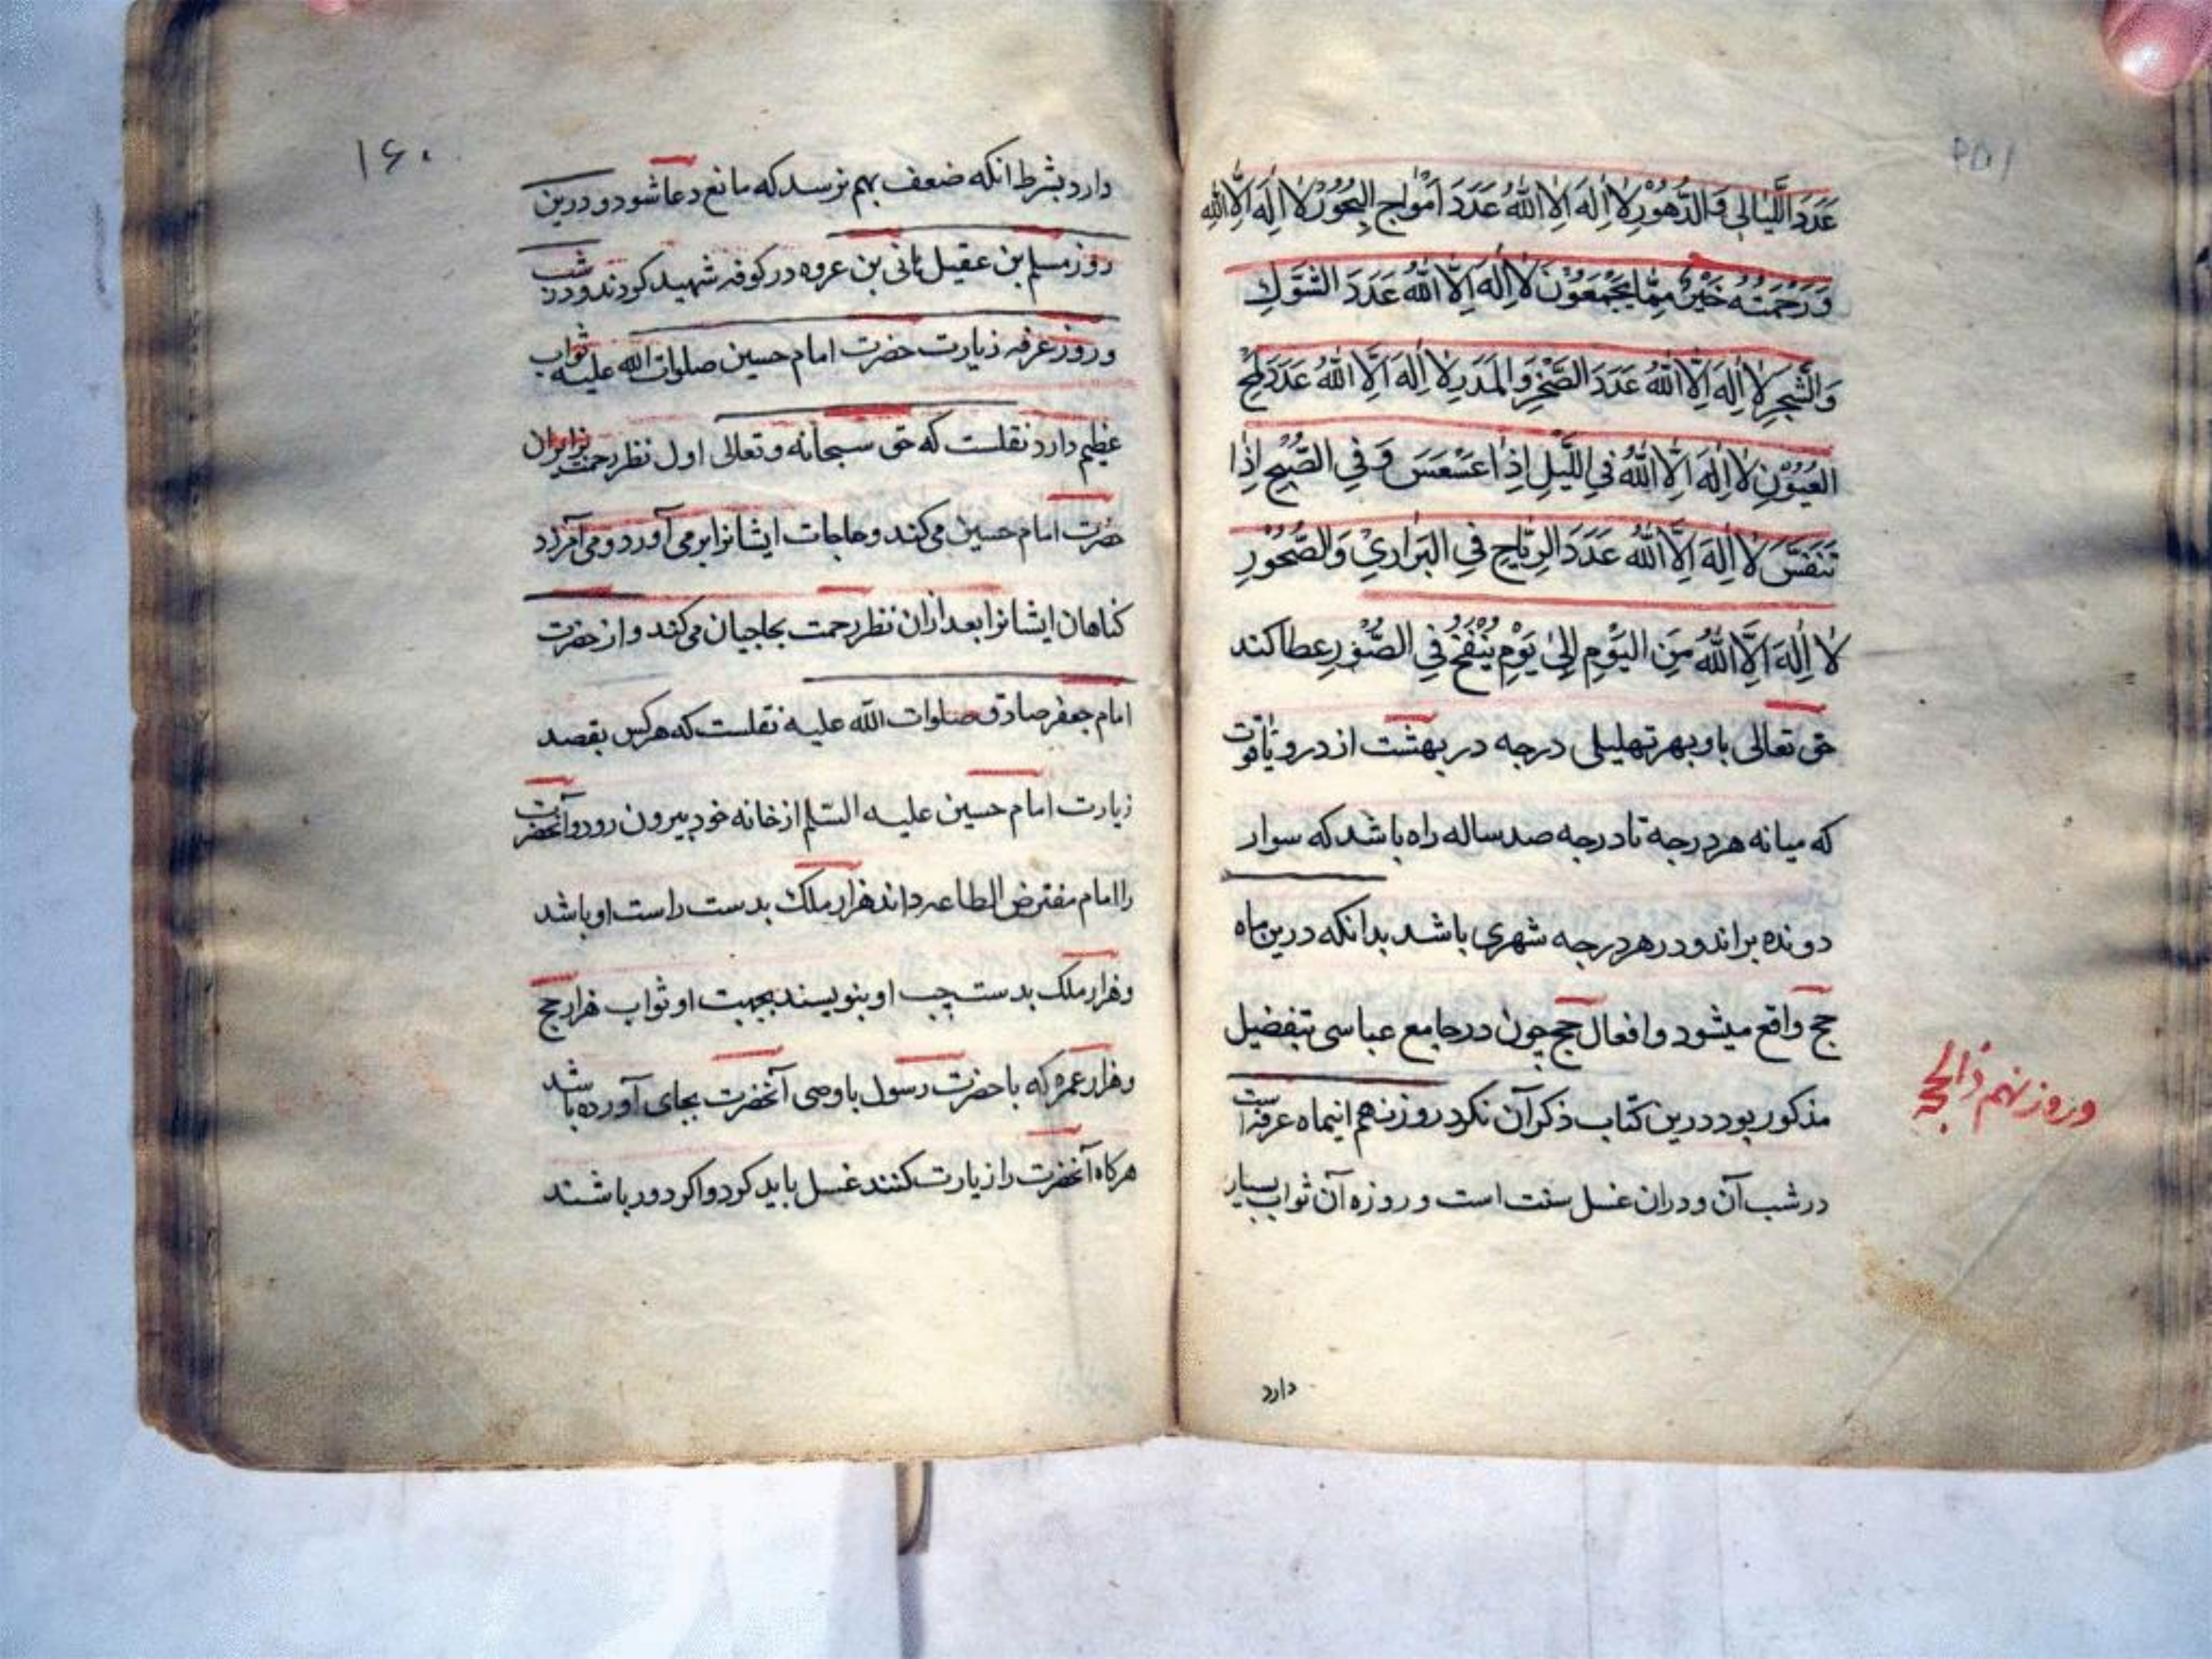 عَدَدَ اللَّیَالِی وَالدُّهُوْرِ لَا اِلٰهَ اِلَّا اللّٰهُ عَدَدَ اَمْوَاجِ الْبُحُوْرِ لَا اِلٰهَ اِلَّا اللّٰه
وَرَحْمَتُهُ خَیْرٌ مِمَّا یَجْمَعُوْنَ لَا اِلٰهَ اِلَّا اللّٰهُ عَدَدَ الشَّوْكِ
وَالشَّجَرِ لَا اِلٰهَ اِلَّا اللّٰهُ عَدَدَ الصَّخْرِ وَالْمَدَرِ لَا اِلٰهَ اِلَّا اللّٰهُ عَدَدَ لَمْحِ
الْعُیُوْنِ لَا اِلٰهَ اِلَّا اللّٰهُ فِی اللَّیْلِ اِذَا عَسْعَسَ وَفِی الصُّبْحِ اِذَا
تَنَفَّسَ لَا اِلٰهَ اِلَّا اللّٰهُ عَدَدَ الرِّیَاحِ فِی الْبَرَارِیْ وَالصُّخُوْرِ
لَا اِلٰهَ اِلَّا اللّٰهُ مِنَ الْیَوْمِ اِلٰی یَوْمِ یُنْفَخُ فِی الصُّوْرِ عطا کند
حق تعالی باو بهر تهلیلی درجه در بهشت از در و یاقوت
که میانه هر درجه تا درجه صد ساله راه باشد که سوار
دونده براند و در هر درجه شهری باشد بدانکه درین ماه
حج واقع میشود و افعال حج چون در جامع عباسی بتفضیل
مذکور بود درین کتاب ذکر آن نکرد روز نهم اینماه عرفه است
در شب آن و دران غسل سنت است و روزه آن ثواب بسیار
وروز نهم ذالحجه
دارد
۱۶۰
دارد بشرط انکه ضعف بهم نرسد که مانع دعا شود و درین
روز مسلم بن عقیل هانی بن عروه در کوفه شهید کردند و در شب
وروز عرفه زیارت حضرت امام حسین صلوات الله علیه ثواب
عظیم دارد نقلست که حق سبحانه وتعالی اول نظر رحمت بزایران
حضرت امام حسین می کند و حاجات ایشانرا بر می آورد و می آمرزد
کناهان ایشانرا بعد ازان نظر رحمت بحاجیان می کند و از حضرت
امام جعفر صادق صلوات الله علیه نقلست که هر کس بقصد
زیارت امام حسین علیه السّلم از خانه خود بیرون رود و آنحضرت
را امام مفترض الطاعه داند هزار ملك بدست راست او باشد
وهزار ملك بدست چپ او بنویسند بجهت او ثواب هزار حج
وهزار عمره که با حضرت رسول یا وصی آنحضرت بجای آورده باشد
هرکاه آنحضرت را زیارت کنند غسل باید کرد و اکر دور باشند